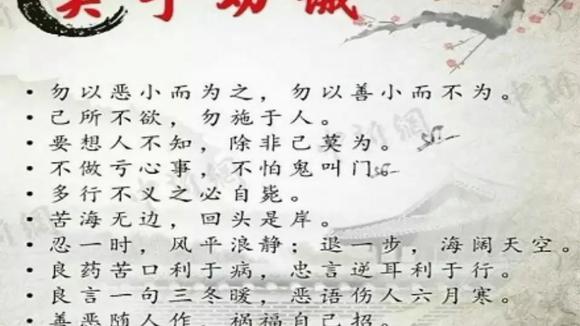 关于劝诫
· 勿以恶小而为之，勿以善小而不为。
· 己所不欲，勿施于人。
· 要想人不知，除非己莫为。
· 不做亏心事，不怕鬼叫门
· 多行不义之必自毙。
· 苦海无边，回头是岸。
· 忍一时，风平浪静；退一步，海阔天空。
· 良药苦口利于病，忠言逆耳利于行。
· 良言一句三冬暖，恶语伤人六月寒。
· 善恶随人作，祸福自己招。